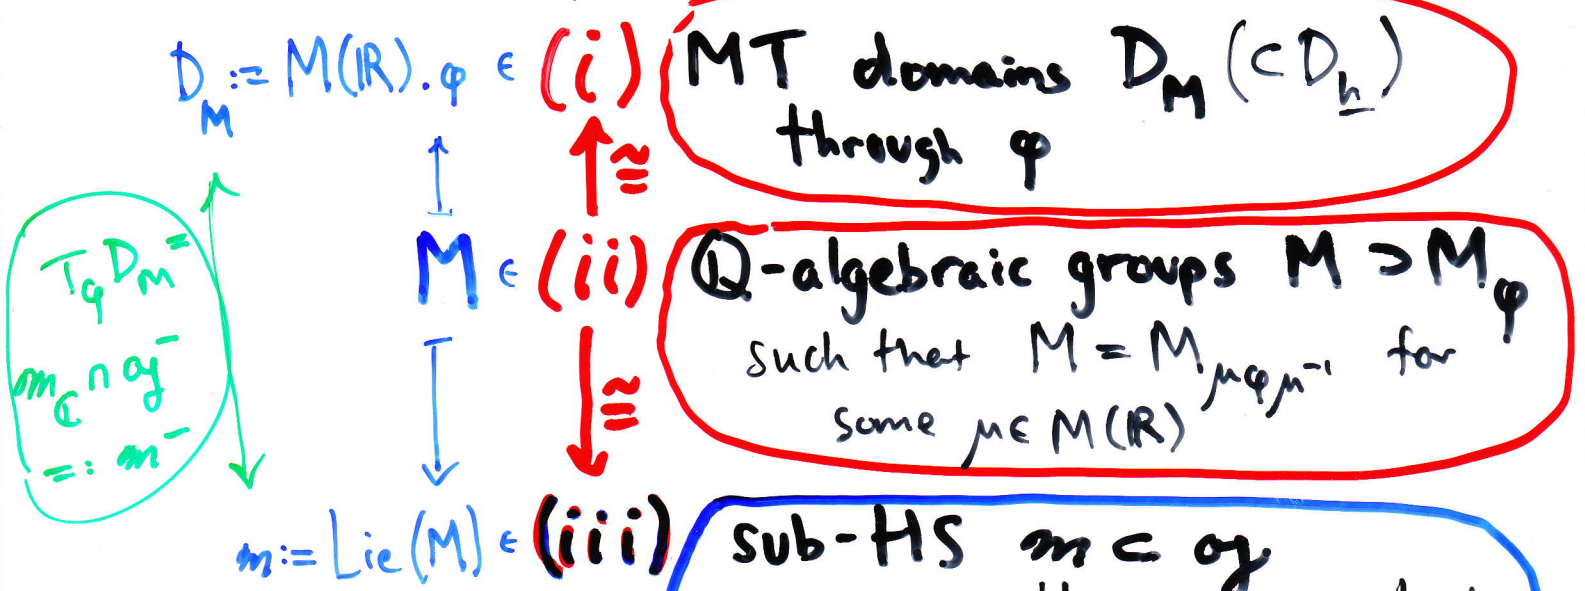 D_M := M(ℝ).φ ∈ (i) MT domains D_M (⊂ D_h)
through φ
≅
M ∈ (ii) ℚ-algebraic groups M ⊃ M_φ
such that M = M_μφμ⁻¹ for
some μ ∈ M(ℝ)
≅
T_φ D_M =
𝔪_ℂ ∩ 𝔤⁻
=: 𝔪⁻
𝔪 := Lie(M) ∈ (iii) sub-HS 𝔪 ⊂ 𝔤